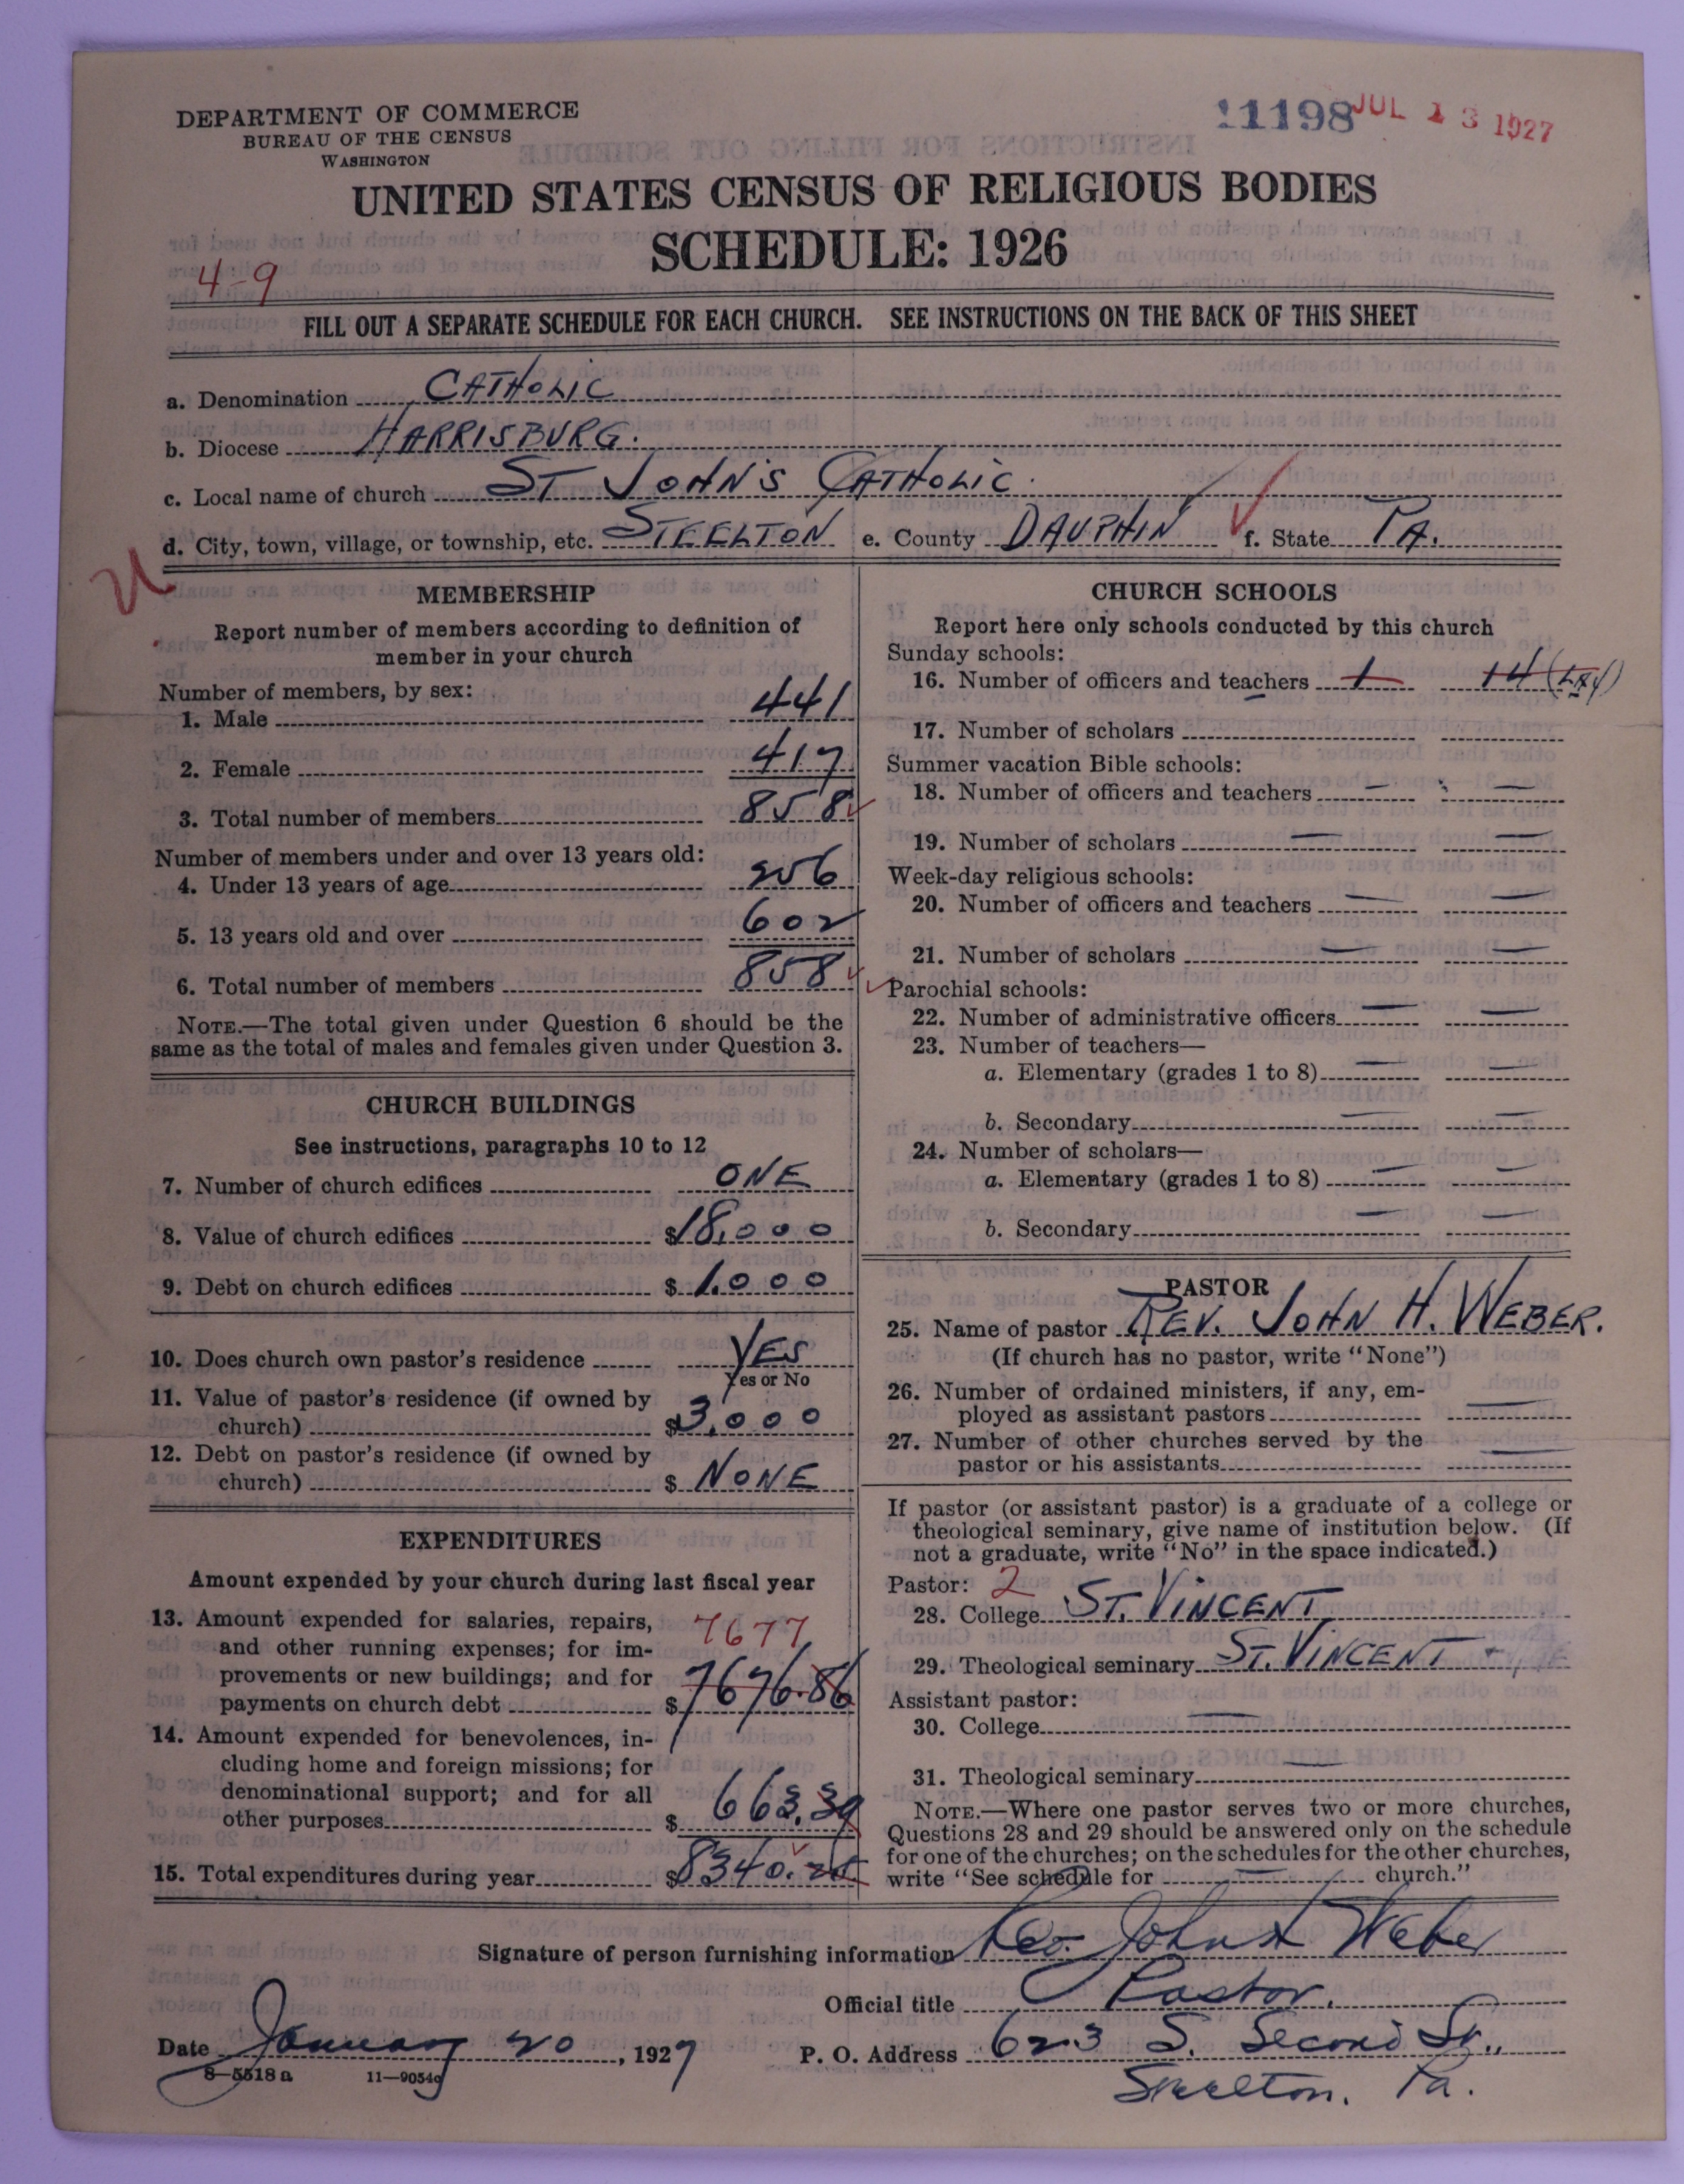 DEPARTMENT OF COMMERCE
BUREAU OF THE CENSUS
WASHINGTON
11198 JUL 13 1927
UNITED STATES CENSUS OF RELIGIOUS BODIES
SCHEDULE: 1926
4-9
FILL OUT A SEPARATE SCHEDULE FOR EACH CHURCH. SEE INSTRUCTIONS ON THE BACK OF THIS SHEET
a. Denomination CATHOLIC
b. Diocese HARRISBURG.
c. Local name of church ST JOHN'S CATHOLIC.
d. City, town, village, or township, etc. STEELTON e. County DAUPHIN f. State PA.
MEMBERSHIP
Report number of members according to definition of
member in your church
Number of members, by sex:
1. Male 441
2. Female 417
3. Total number of members 858
Number of members under and over 13 years old:
4. Under 13 years of age 256
5. 13 years old and over 602
6. Total number of members 858
NOTE.—The total given under Question 6 should be the
same as the total of males and females given under Question 3.
CHURCH BUILDINGS
See instructions, paragraphs 10 to 12
7. Number of church edifices ONE
8. Value of church edifices $18,000
9. Debt on church edifices $1,000
10. Does church own pastor's residence YES
Yes or No
11. Value of pastor's residence (if owned by
church) $3,000
12. Debt on pastor's residence (if owned by
church) $ NONE
EXPENDITURES
Amount expended by your church during last fiscal year
13. Amount expended for salaries, repairs, 7677
and other running expenses; for im-
provements or new buildings; and for
payments on church debt $7676.86
14. Amount expended for benevolences, in-
cluding home and foreign missions; for
denominational support; and for all
other purposes $663.39
15. Total expenditures during year $8340.25
CHURCH SCHOOLS
Report here only schools conducted by this church
Sunday schools:
16. Number of officers and teachers 1 14 (LAY)
17. Number of scholars
Summer vacation Bible schools:
18. Number of officers and teachers — —
19. Number of scholars — —
Week-day religious schools:
20. Number of officers and teachers — —
21. Number of scholars — —
Parochial schools:
22. Number of administrative officers — —
23. Number of teachers—
a. Elementary (grades 1 to 8) — —
b. Secondary — —
24. Number of scholars—
a. Elementary (grades 1 to 8) — —
b. Secondary — —
PASTOR
25. Name of pastor REV. JOHN H. WEBER.
(If church has no pastor, write "None")
26. Number of ordained ministers, if any, em-
ployed as assistant pastors —
27. Number of other churches served by the
pastor or his assistants —
If pastor (or assistant pastor) is a graduate of a college or
theological seminary, give name of institution below. (If
not a graduate, write "No" in the space indicated.)
Pastor: 2
28. College ST. VINCENT
29. Theological seminary ST. VINCENT
Assistant pastor:
30. College —
31. Theological seminary —
NOTE.—Where one pastor serves two or more churches,
Questions 28 and 29 should be answered only on the schedule
for one of the churches; on the schedules for the other churches,
write "See schedule for — church."
Signature of person furnishing information Rev. John H Weber
Official title Pastor.
Date January 20, 1927 P. O. Address 623 S. Second St.,
8-5518a 11-9054a Steelton, Pa.